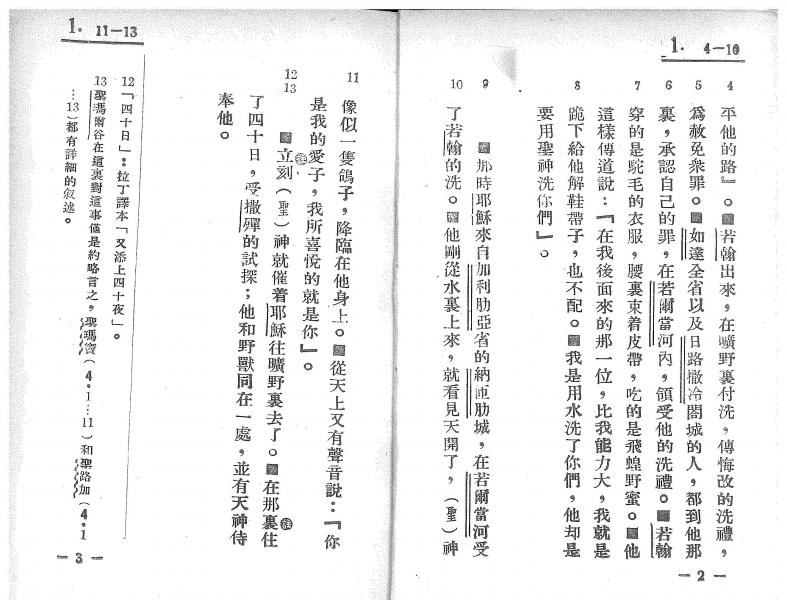 1. 4—10
4 平他的路』。▩若翰出來，在曠野裏付洗，傳悔改的洗禮，
5 爲赦免衆罪。▩如達全省以及日路撒冷閤城的人，都到他那
6 裏，承認自己的罪，在若爾當河內，領受他的洗禮。▩若翰
7 穿的是駝毛的衣服，腰裏束着皮帶，吃的是飛蝗野蜜。▩他
這樣傳道說：『在我後面來的那一位，比我能力大，我就是
8 跪下給他解鞋帶子，也不配。▩我是用水洗了你們，他却是
要用聖神洗你們』。
9 ▩那時耶穌來自加利肋亞省的納匝肋城，在若爾當河受
10 了若翰的洗。▩他剛從水裏上來，就看見天開了，（聖）神
—2—
1. 11—13
11 像似一隻鴿子，降臨在他身上。▩從天上又有聲音說：『你
是我的愛子，我所喜悅的就是你』。
12 13 ▩立刻（聖）神就催着耶穌往曠野裏去了。▩在那裏住
了四十日，受撒殫的試探；他和野獸同在一處，並有天神侍
奉他。
12「四十日」：拉丁譯本「又添上四十夜」。
13 聖瑪爾谷在這裏對這事僅是約略言之，聖瑪竇（4.1…11）和聖路加（4.1
…13）都有詳細的叙述。
—3—